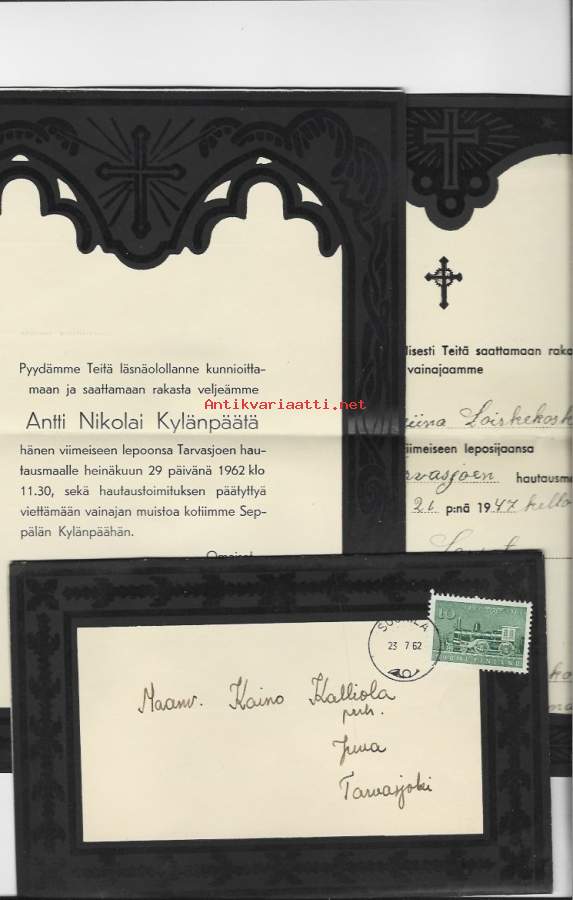 Pyydämme Teitä läsnäolollanne kunnioitta-
maan ja saattamaan rakasta veljeämme
Antti Nikolai Kylänpäätä
hänen viimeiseen lepoonsa Tarvasjoen hau-
tausmaalle heinäkuun 29 päivänä 1962 klo
11.30, sekä hautaustoimituksen päätyttyä
viettämään vainajan muistoa kotiimme Sep-
pälän Kylänpäähän.
Omaiset.
Antikvariaatti.net
lisesti Teitä saattamaan raka
vainajaamme
iina Loiskekosk
viimeiseen leposijaansa
rvasjoen hautausm
21 p:nä 1947 kello
23 7 62
10
SUOMI FINLAND
Maanv. Kaino Kalliola
perh.
Juva
Tarvasjoki